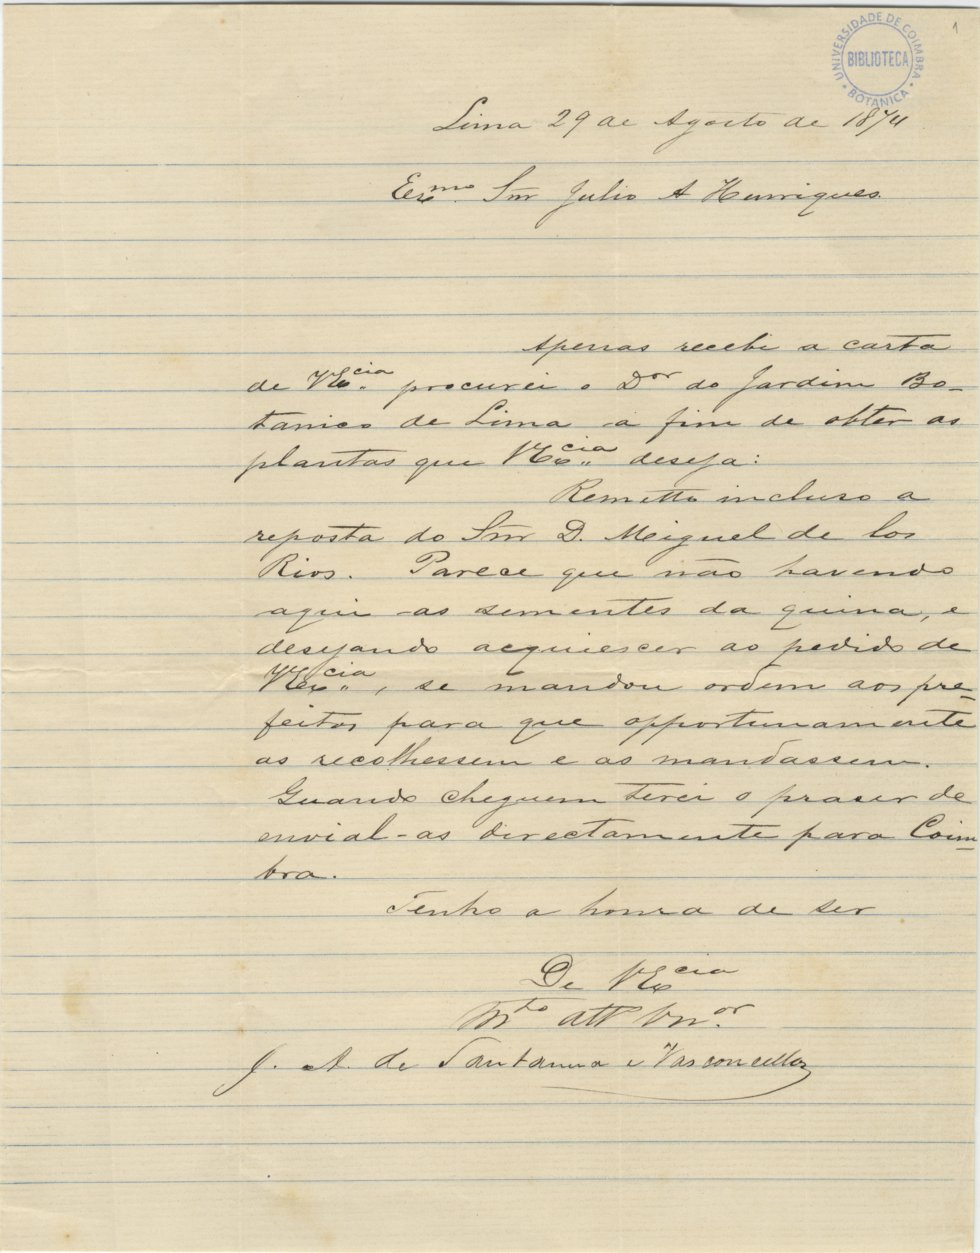 UNIVERSIDADE DE COIMBRA
BIBLIOTECA
BOTANICA
1
Lima 29 de Agosto de 1874
Exmo. Snr Julio A Henriques.
Apenas recebi a carta
de VExcia.. procurei o Dor do Jardim Bo-
tanico de Lima a fim de obter as
plantas que VExcia.. deseja:
Remetto incluso a
reposta do Snr D. Miguel de los
Rios. Parece que não havendo
aqui as sementes da quina, e
desejando acquiescer ao pedido de
VExcia.., se mandou ordem aos pre-
feitos para que opportunamente
as recolhessem e as mandassem.
Quando cheguem terei o praser de
envial-as directamente para Coim-
bra.
Tenho a honra de ser
De VExcia
Mto att Vnor.
J. A. de Santanna e Vasconcellos